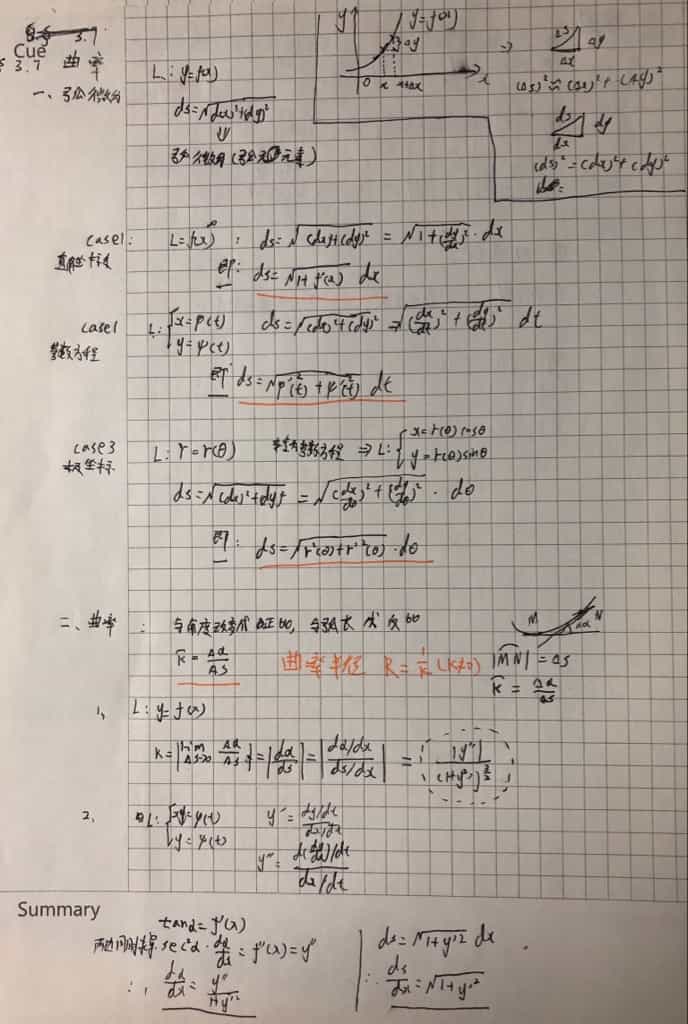 3.7
Cue
§ 3.7 曲率
一、弧微分
L: y=f(x)
ds=√(dx)²+(dy)²
⇓
弧微分(弧元素)
y
y=f(x)
Δy
0 x x+Δx x
⇒
Δs Δy
Δx
(Δs)²≈(Δx)²+(Δy)²
ds dy
dx
(ds)²=(dx)²+(dy)²
case1: L=f(x) : ds=√(dx)²+(dy)² = √1+(dy/dx)² · dx
直角坐标
即: ds=√1+f'(x) dx
case1 L: {x=φ(t) y=ψ(t) ds=√(dx)²+(dy)² ⇒ √(dx/dt)²+(dy/dt)² dt
参数方程
即 ds=√φ'²(t)+ψ'²(t) dt
case3 L: r=r(θ) 参数方程 ⇒ L: {x=r(θ)cosθ y=r(θ)sinθ
极坐标
ds=√(dx)²+(dy)² = √(dx/dθ)²+(dy/dθ)² · dθ
即: ds=√r²(θ)+r'²(θ) · dθ
二、曲率 : 与角度改变成正比, 与弧长成反比
K̄=Δα/Δs 曲率半径 R=1/K (K≠0)
M N Δα
|MN|=Δs
K̄=Δα/Δs
1, L: y=f(x)
K=|lim Δs→0 Δα/Δs|=|dα/ds|=|dα/dx / ds/dx| = |y''|/(1+y'²)^3/2
2, L: {x=φ(t) y=ψ(t) y'=dy/dt / dx/dt
y''=d(dy/dx)/dt / dx/dt
Summary
tanα=f'(x)
两边同时求导. sec²α · dα/dx = f''(x)=y''
∴ dα/dx = y''/1+y'²
ds=√1+y'² dx
∴ ds/dx=√1+y'²